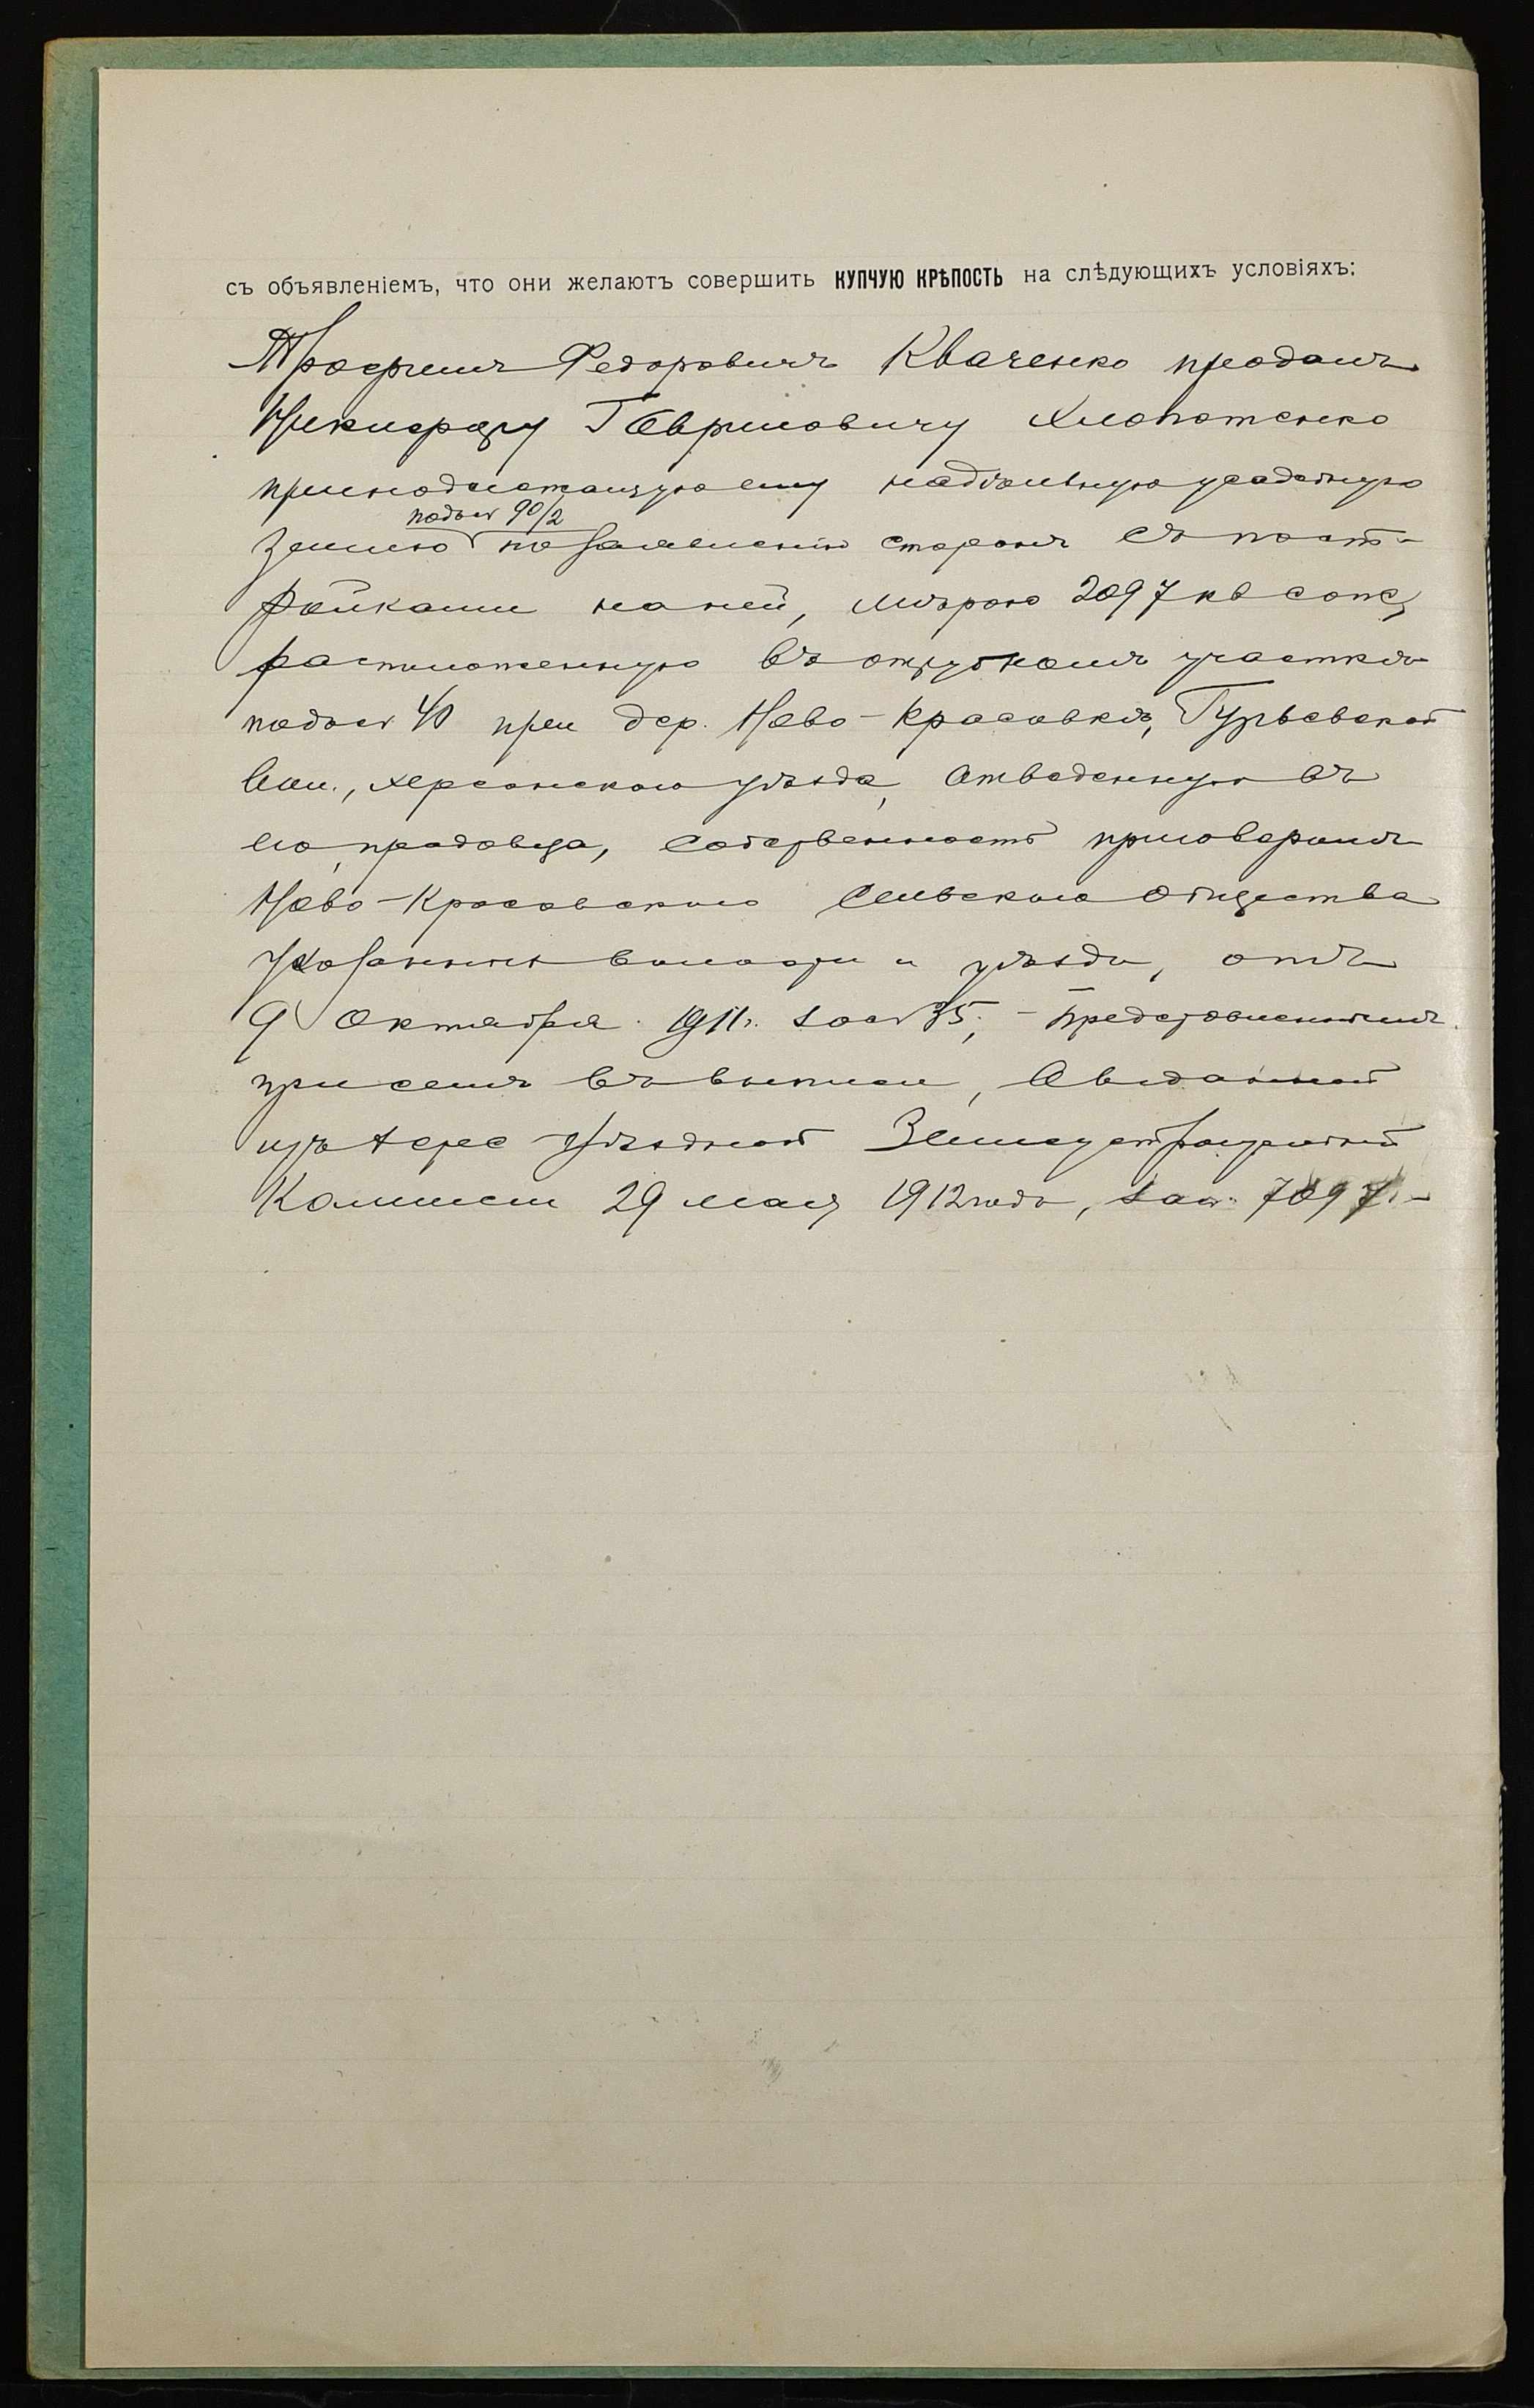 съ объявленіемъ, что они желаютъ совершить КУПЧУЮ КРѢПОСТЬ на слѣдующихъ условіяхъ:
Трофимъ Федоровичъ Кваченко продалъ
Никифору Гавриловичу Хлопотенко
принадлежащую ему надѣльную усадебную
подъ № 90/2
землю по заявленію сторонъ съ пост-
ройками на ней, мѣрою 2097 кв саж,
расположенную въ отрубномъ участкѣ
подъ № 40 при дер. Ново-Красовкѣ, Гурьевской
вол., Херсонскаго уѣзда, отведенную въ
его, продавца, собственность приговоромъ
Ново-Красовскаго сельскаго общества
указанныхъ волости и уѣзда, отъ
9 Октября 1911 г. за № 35, - представленнымъ
при семъ въ выписи, выданной
изъ Херс Уѣздной Землеустроительной
Комиссіи 29 мая 1912 года, за № 7097.-